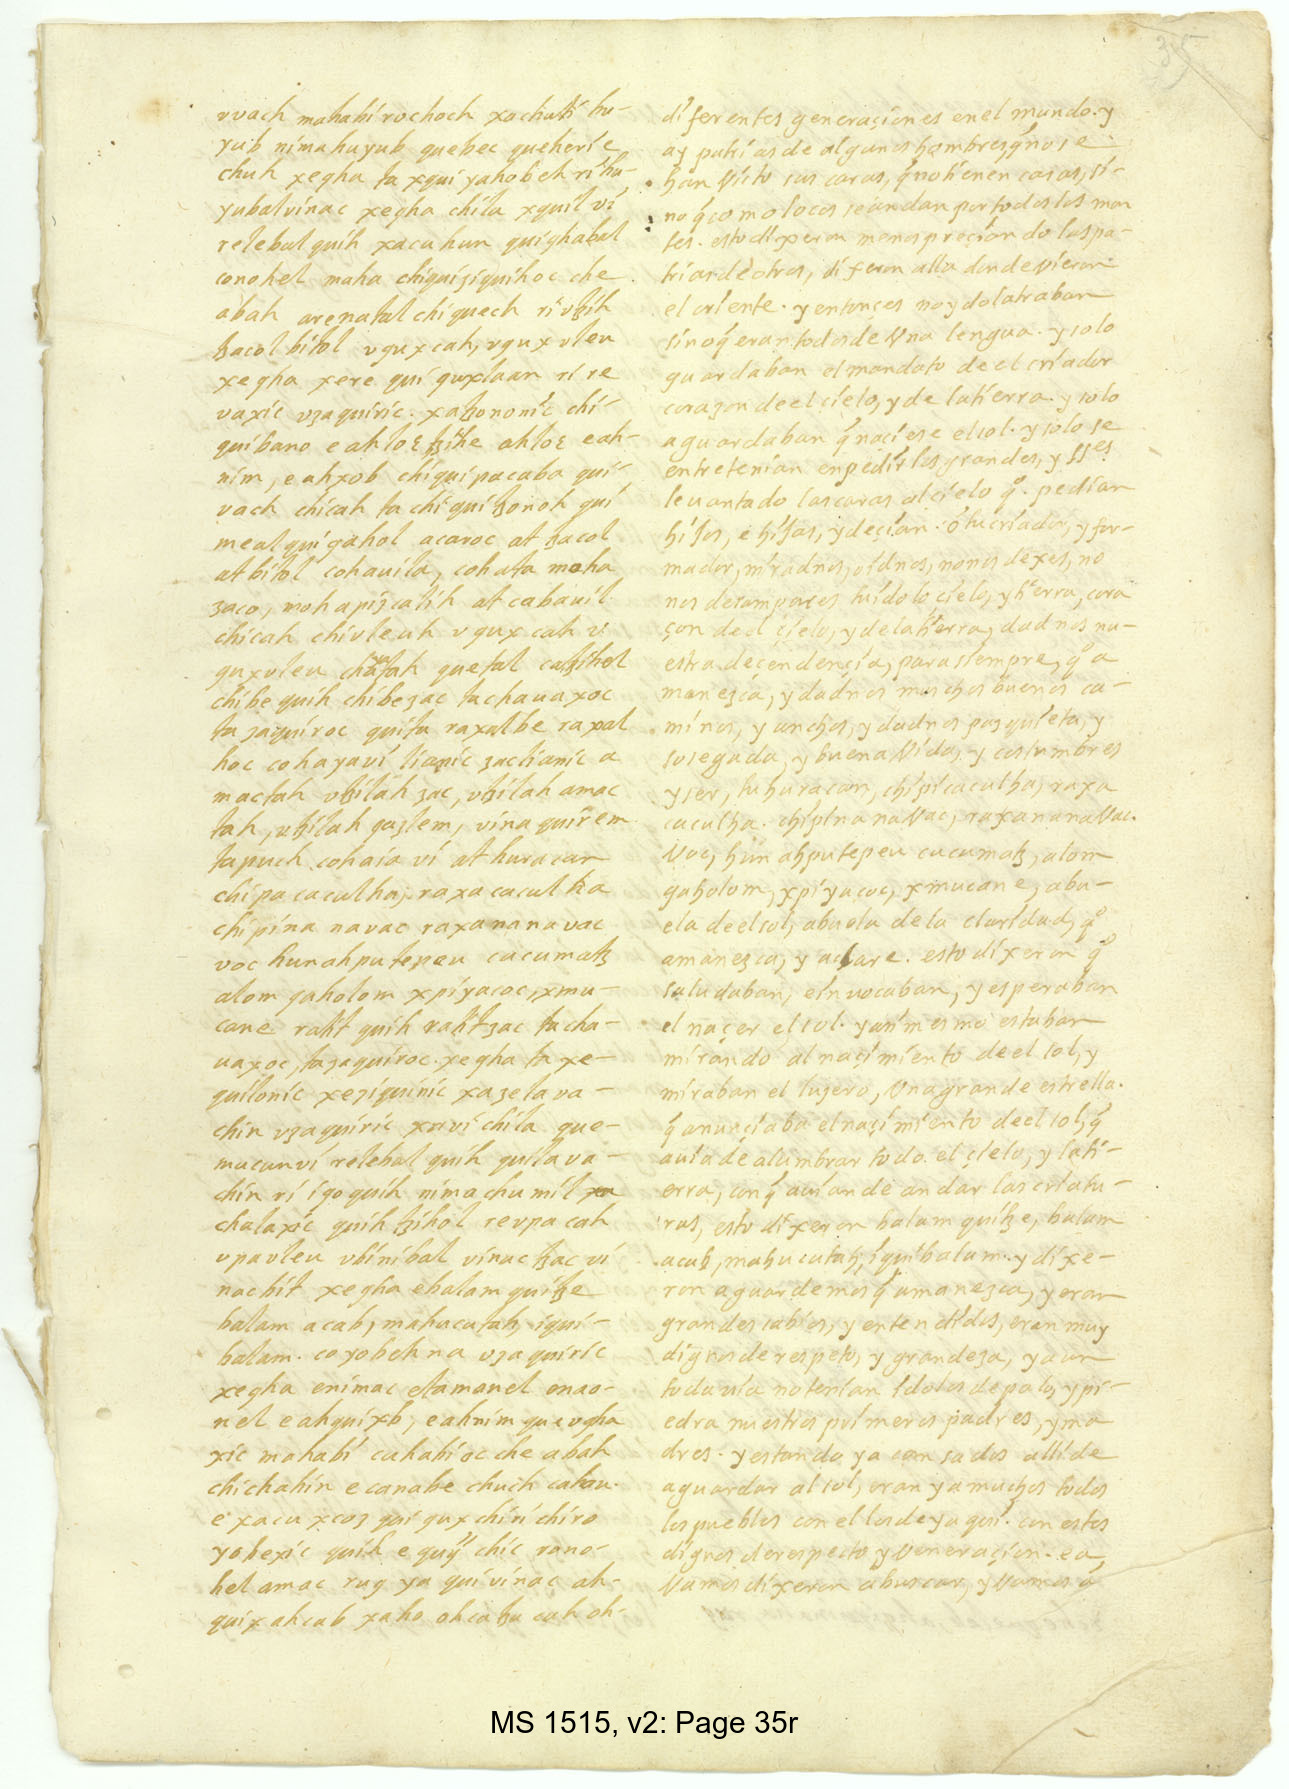 35
vvach mahabi rochoch xachuti hu-
yub nimahuyub quehec queherie
chuh xegha ta xqui yahobeh ri hu-
yubal vinac xegha chila xquil vi
relebal quih xacuhun quighabal
conohel maha chiquiziquihoc che
abah arenatal chiquech ri vtzih
tzacol bitol vqux cah, vqux vleu
xegha xere qui quxlaan ri re
vaxic vzaquiric. xatzononic chi-
nim, eahxob chiqui pacaba qui-
vach chicah ta chi quitzonoh qui
meal quigahol acaroc at tzacol
at bitol cohauila, cohata moha
zaco, moh apizcalih at cabauil
chicah chivleuh vqux cah v
quxvleu quetal catzihol
chibe quih chibe zac tachauaxoc
ta zaquiroc quita raxalbe raxal
hoc cohayavi lianic zaclianic a
mactah vtzilah zac, vtzilah amac
tah, utzilah qazlem, vinaquirem
tapuch cohaia vi at huracan
chipa caculha, raxa caculha
chipina navac raxananavac
voc hunahputepeu cucumatz
alom qaholom xpiyacoc, xmu-
cane ratit quih ratit zac tacha-
uaxoc, tazaquiroc. xegha ta xe-
quilonic xeziquinic xazelava-
chin vzaquiric xrivi chila que-
macanvi relebal quih quilava-
chin ri iqoquih nimachumil
chalaxic quih tzihol revpa cah
vpavleu vbinibal vinac tzac vi
nacbit xegha ebalam quitze
balam acab, mahucutah, iqui-
balam. coyobeh na vzaquiric
xegha enimac etamanel enao-
nel eahquixb, eahnim qu evgha
xic mahabi cahabioc che abah
chichahin e canabe chuch cahau.
e xacu xcoz qui qux chiri chiro
yobexic quih e quy chic rono-
hel amac ruq ya qui vinac ah-
quix ahcab xaho ohcatzucuh oh-
diferentes generaçiones enel mundo. y
ay patrias de algunos hombres, q̃ no se
han visto sus caras, q̃ no tienen casas, si-
no q̃ como locos se andan por todos los mon
tes. esto dixeron menospreçiando las pa-
trias de otros, diferon alla donde vieron
el oriente. y entonçes no ydolatraban
sino q̃ eran todos de vna lengua. y solo
guardaban el mandato de el criador
corazon de el çielo, y de la tierra. y solo
aguardaban q̃ naçiese el sol. y solo se
entretenian en pedir los grandes, y sses
leuantado las caras al cielo qº. pedian
hijos, e hijas, y deçian. ó tu criador, y for-
mador, miradnos, oidnos, no nos dexes, no
nos desampares tu idolo çielo, y tierra, cora
çon de el çielo, y de la tierra, dad nos nu-
estra deçendençia, para siempre, qº a
manezca, y dadnos muchos buenos ca-
minos, y anchos, y dadnos paz quieta, y
sosegada, y buena vida, y costumbres
y ser, tu huracan, chipi caculha, raxa
caculha. chipina navac, raxananavac.
voc, hun ahpu tepeu cucumatz, alom
gaholom, xpiyacoc, xmucane, abu-
ela de el sol, abuela de la claridad, qº
amanezca, y aclare. esto dixeron qº
saludaban, e invocaban, y esperaban
el naçer el sol. y asi mesmo estaban
mirando al naçimiento de el sol, y
miraban el luzero, vna grande estrella.
q̃ anunçiaba el naçimiento de el sol, q̃
auia de alumbrar todo el çielo, y la ti-
erra, con q̃ auian de andar las criatu-
ras, esto dixeron balam quitze, balam
acab, mahucutah, iquibalam. y dixe-
ron aguardemos q̃ amanezca, y eran
grandes sabios, y entendidos, eran muy
dignos de respeto, y grandeza, y aun
todavia no tenian idolos de palo, y pi-
edra nuestros primeros padres, y ma
dres. y estando ya cansados alli de
aguardar al sol, eran ya muchos todos
los pueblos con ellos de yaqui. con estos
dignos de respecto y veneraçion. ea,
vamos dixeron a buscar, y vamos q̃
MS 1515, v2: Page 35r